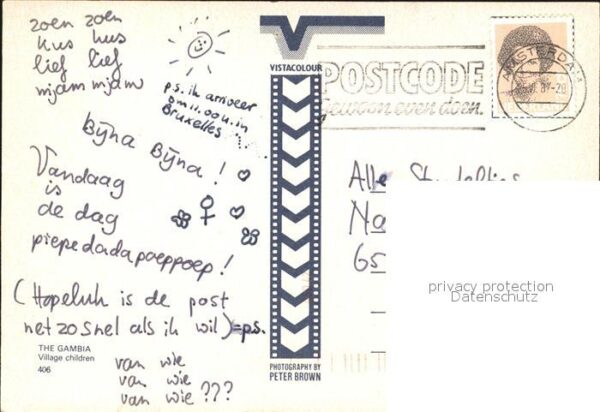 zoen zoen
kus kus
lief lief
mjam mjam
p.s. ik arriveer
om 11.00 u. in
Bruxelles
Bijna Bijna !
Vandaag
is
de dag
piepedadapoeppoep !
(Hopeluk is de post
net zo snel als ik wil) = p.s.
THE GAMBIA
Village children
406
van wie
van wie
van wie ???
VISTACOLOUR
PHOTOGRAPHY BY
PETER BROWN
POSTCODE
Gewoon even doen.
AMSTERDAM
Na
65
privacy protection
Datenschutz